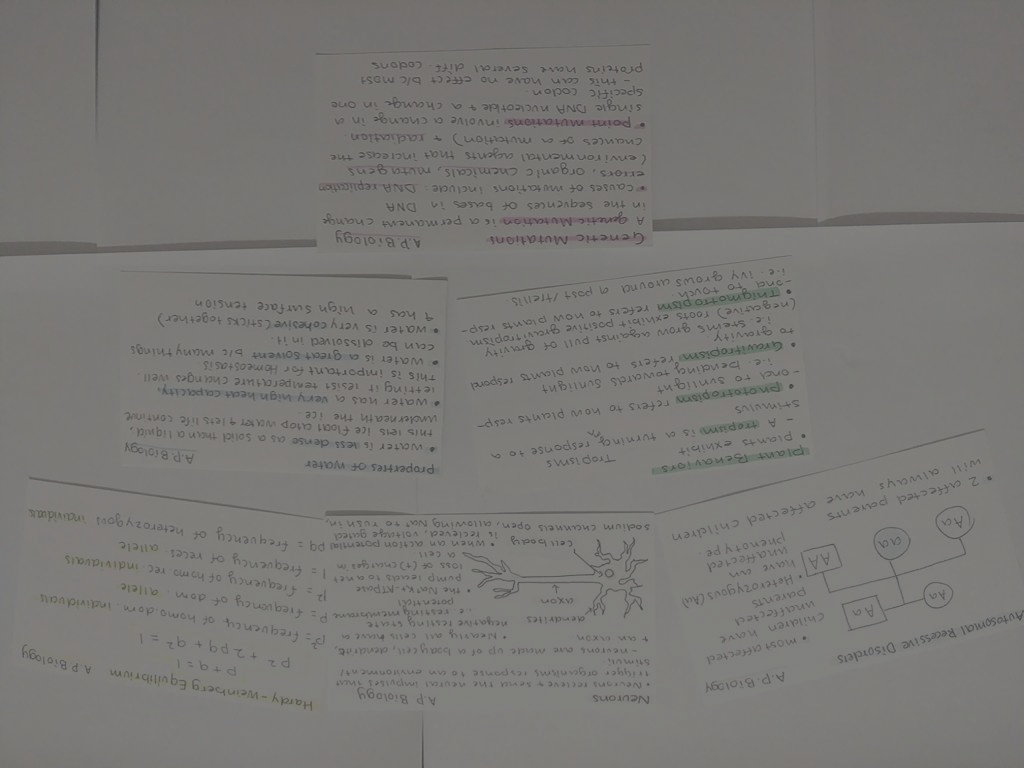 Autosomal Recessive Disorders
A.P Biology
Aa
Aa
Aa
aa
AA
• most affected
children have
unaffected
parents
• Heterozygous (Aa)
have an
unaffected
phenotype.
• 2 affected parents
will always have affected children
Neurons
A.P Biology
• Neurons recieve + send the neural impulses that
trigger organisms response to an environmental
stimuli.
-neurons are made up of a body cell, dendrite,
+ an axon.
dendrites
axon
cell body
• Nearly all cells have a
negative resting state
i.e. resting membrane
potential
• The Na+, K+ ATPase
pump leads to a net
loss of (+) charges in
a cell
• when an action potential
is recieved, voltage gated
sodium channels open, allowing Na+ to rush in.
Hardy-Weinberg Equilibrium
A.P Biology
p+q = 1
p² + 2pq + q² = 1
p² = frequency of homo dom. individuals
p = frequency of dom. allele
q² = frequency of homo rec individuals
q = frequency of reces allele
2pq = frequency of heterozygous individuals
Plant Behaviors
Tropisms
• plants exhibit
- A tropism is a turning response to a
stimulus
• phototropism refers to how plants resp-
ond to sunlight
i.e. bending towards sunlight
• Gravitropism refers to how plants respond
to gravity
i.e. stems grow against pull of gravity
(negative) roots exhibit positive gravitropism
• Thigmotropism refers to how plants resp-
ond to touch
i.e. ivy grows around a post/trellis
properties of water
A.P Biology
• water is less dense as a solid than a liquid,
this lets ice float atop water + lets life continue
underneath the ice.
• water has a very high heat capacity,
letting it resist temperature changes well.
This is important for Homeostasis
• water is a great solvent b/c many things
can be dissolved in it.
• water is very cohesive (sticks together)
+ has a high surface tension
Genetic Mutations
A.P Biology
A genetic Mutation is a permanent change
in the sequences of bases in DNA
• causes of mutations include: DNA replication
errors, organic chemicals, mutagens
(environmental agents that increase the
chances of a mutation) + radiation
• point mutations involve a change in a
single DNA nucleotide + a change in one
specific codon.
- this can have no effect b/c most
proteins have several diff. codons